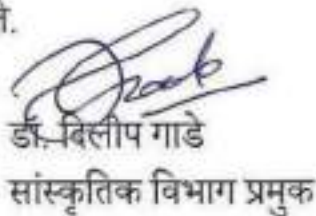 ते.
डॉ. दिलीप गाडे
सांस्कृतिक विभाग प्रमुक